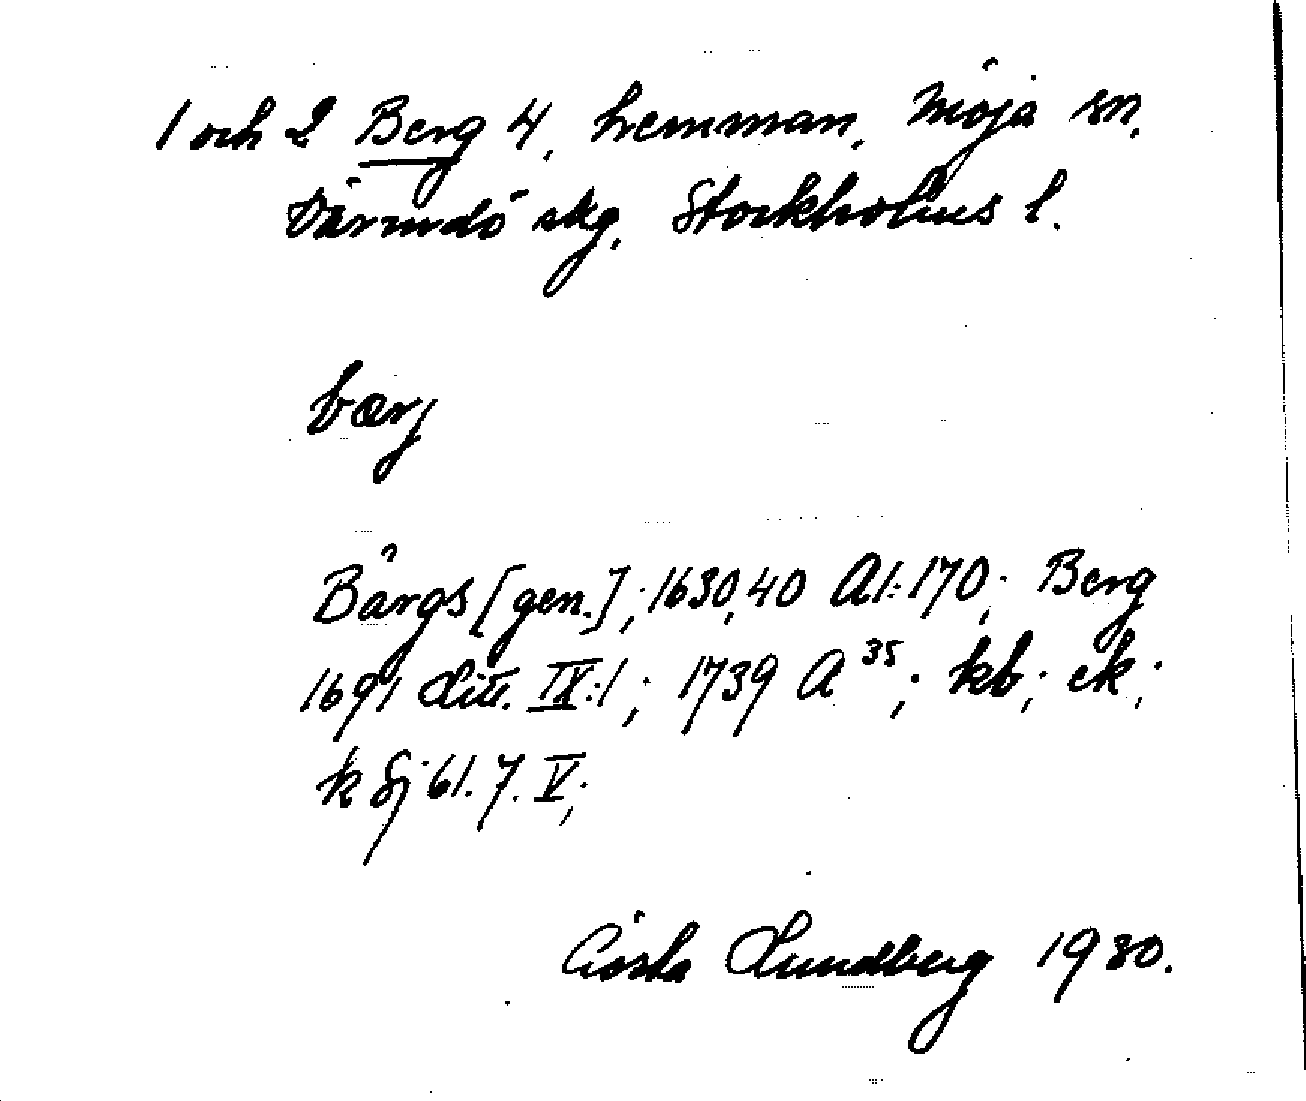 1 och 2 Berg 4, hemman, Möja sn,
Värmdö skg, Stockholms l.
bærj
Bärgs [gen.]; 1630,40 A1:170; Berg
1691 Litt. IX:1; 1739 A 35; kb; ek;
k Sj 61.7.V;
Gösta Lundberg 1930.